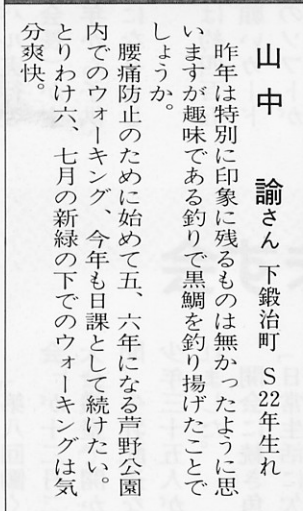 山中　諭さん 下鍛治町 S22年生れ
昨年は特別に印象に残るものは無かったように思
いますが趣味である釣りで黒鯛を釣り揚げたことで
しょうか。
腰痛防止のために始めて五、六年になる芦野公園
内でのウォーキング、今年も日課として続けたい。
とりわけ六、七月の新緑の下でのウォーキングは気
分爽快。